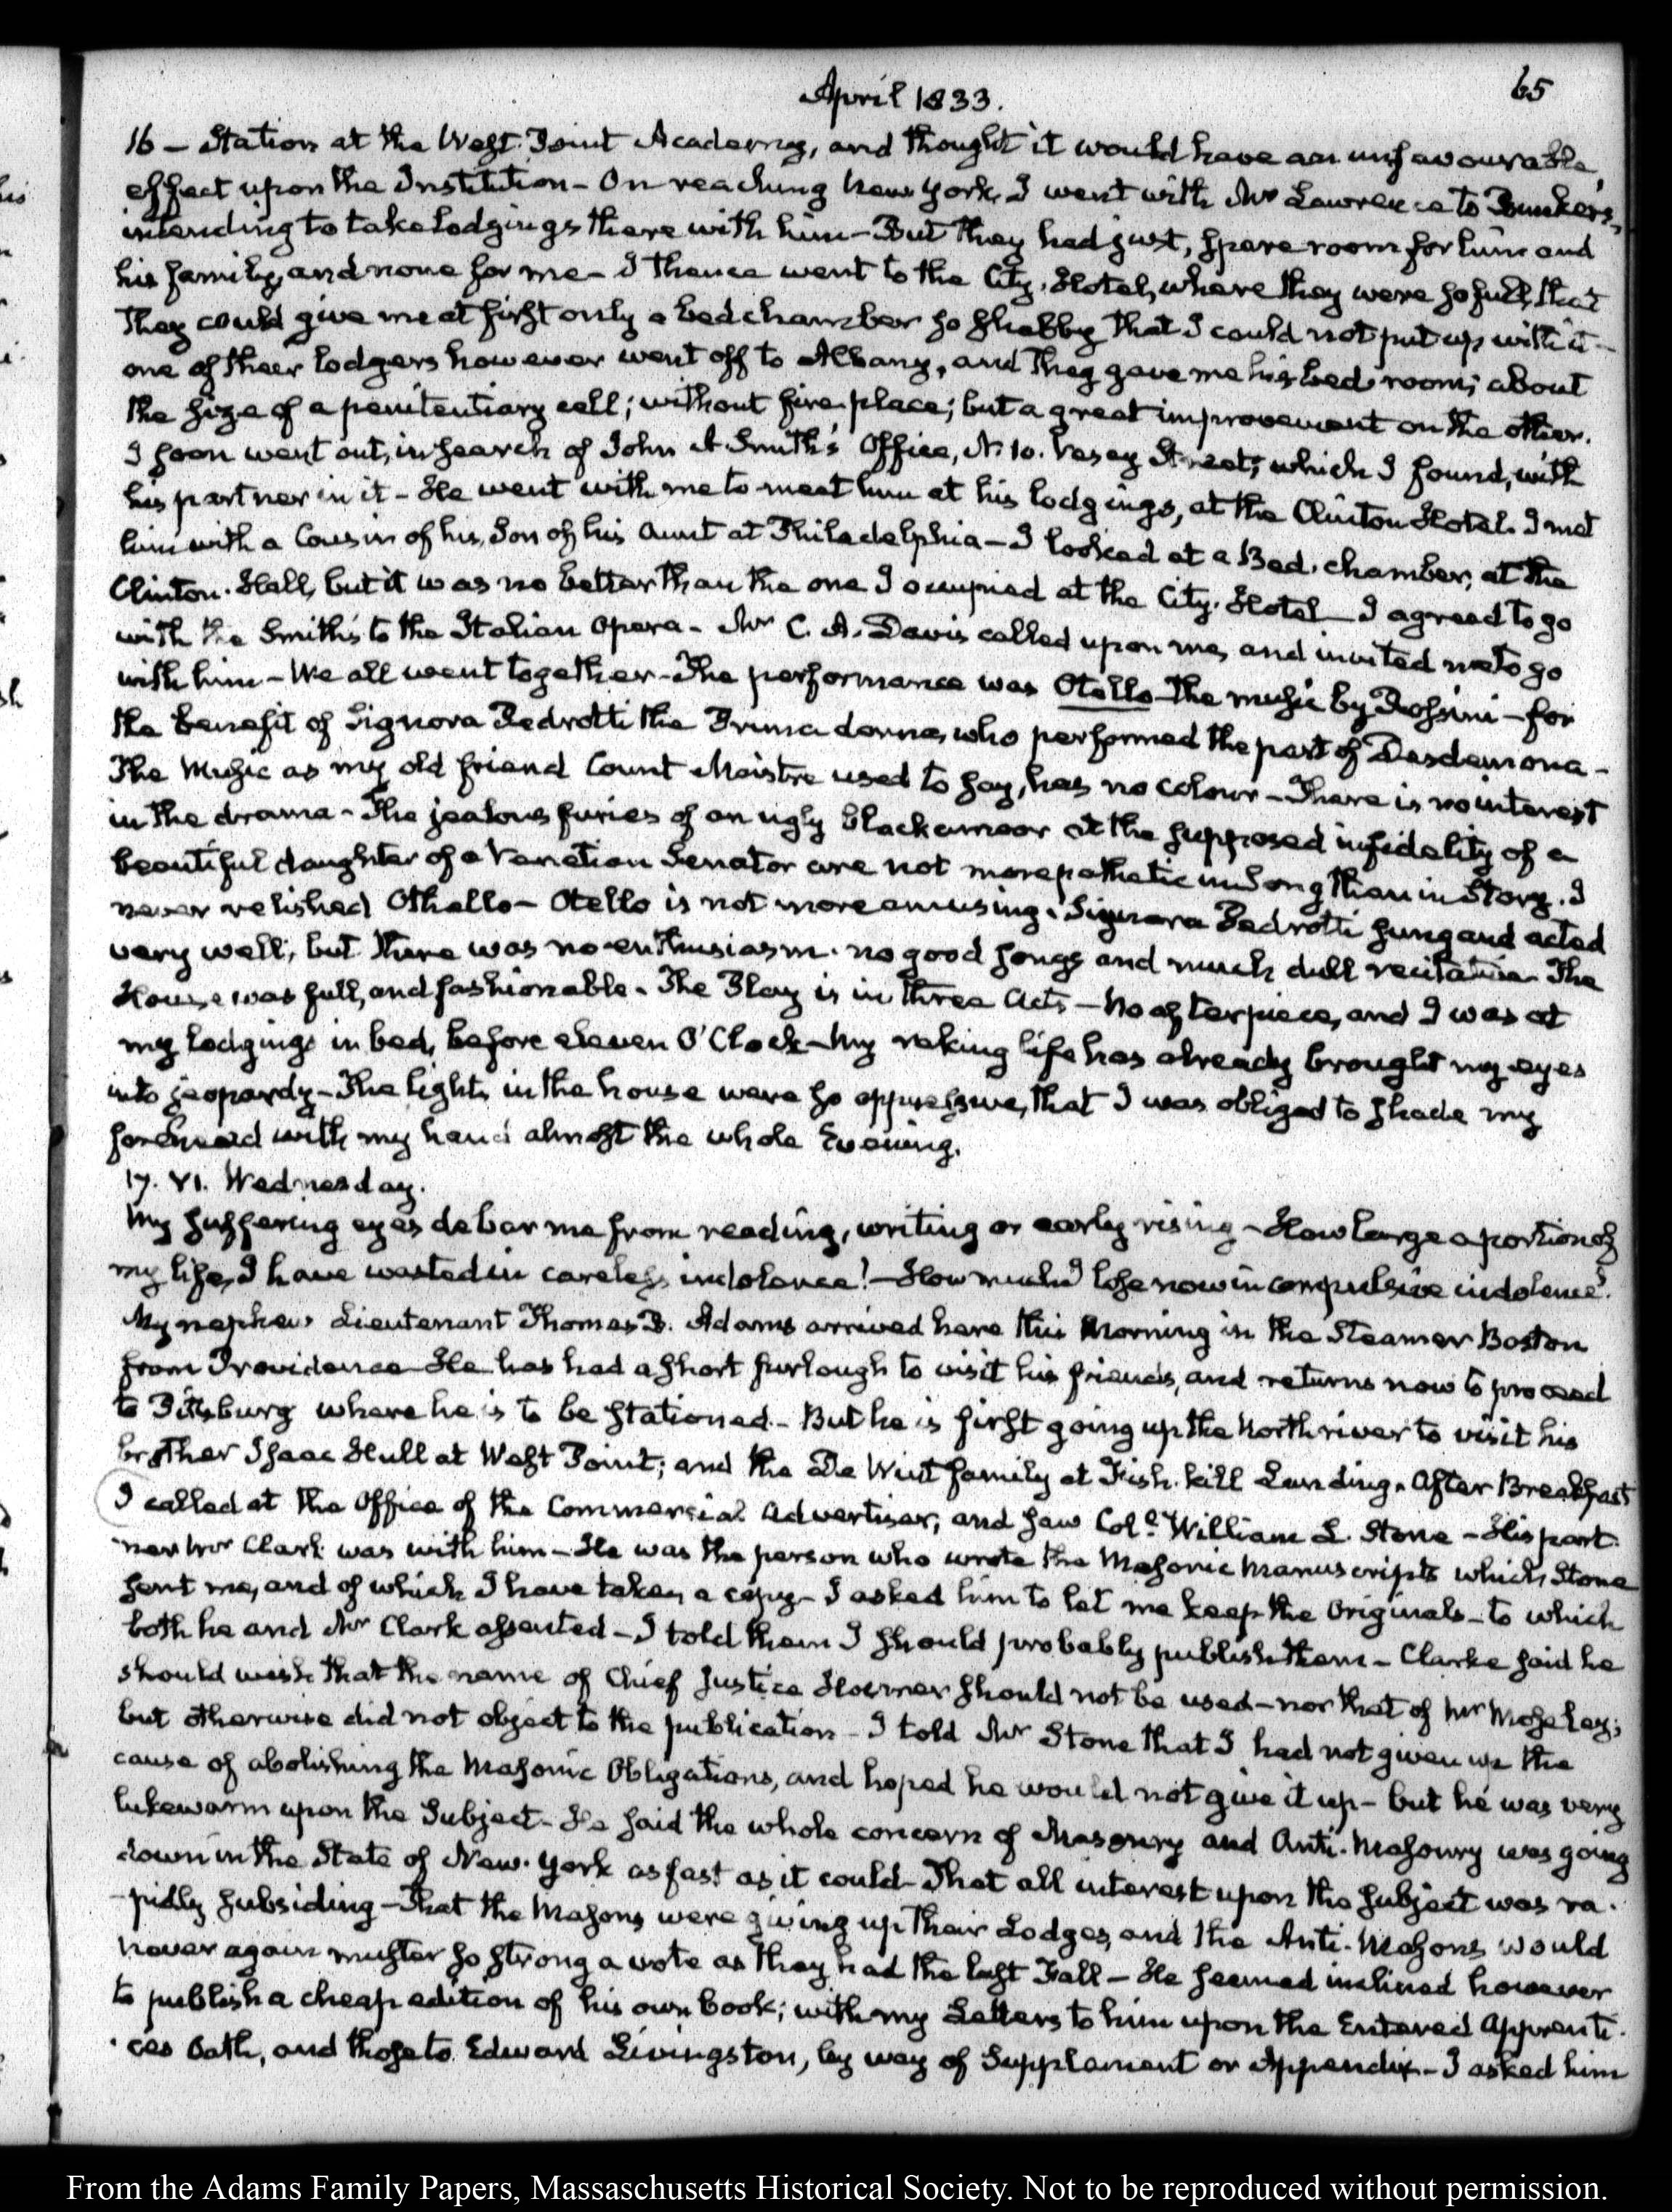 April 1833.
65
16 – Station at the West-Point Academy, and thought it would have an unfavourable
effect upon the Institution – On reaching New York, I went with Mr Lawrence to Bunker's,
intending to take lodgings there with him – But they had just, spare room for him and
his family, and none for me – I thence went to the City-Hotel, where they were so full, that
they could give me at first only a bedchamber so shabby that I could not put up with it –
one of their lodgers however went off to Albany, and they gave me his bed room; about
the size of a penitentiary cell; without fire-place; but a great improvement on the other.
I soon went out, in search of John A Smith's Office, N. 10. Vesey Street; which I found, with
his partner in it – He went with me to meet him at his lodgings, at the Clinton Hotel. I met
him with a Cousin of his, Son of his Aunt at Philadelphia – I looked at a Bed-chamber, at the
Clinton-Hall, but it was no better than the one I occupied at the City-Hotel – I agreed to go
with the Smith's to the Italian Opera – Mr C. A. Davis called upon me, and invited me to go
with him – We all went together – The performance was Otello – the music by Rossini – for
the benefit of Signora Pedrotti the Prima donna, who performed the part of Desdemona –
The Music as my old friend Count Maistre used to say, has no colour – There is no interest
in the drama – The jealous furies of an ugly blackamoor at the supposed infidelity of a
beautiful daughter of a Venetian Senator are not more pathetic in Song than in Story. I
never relished Othello – Otello is not more amusing. Signora Pedrotti sung and acted
very well, but there was no enthusiasm. no good songs and much dull recitative The
House was full, and fashionable. The Play is in three Acts – No afterpiece, and I was at
my lodgings in bed, before eleven O'Clock – My raking life has already brought my eyes
into jeopardy – The lights in the house were so oppressive, that I was obliged to shade my
forehead with my hand almost the whole Evening.
17. VI. Wednesday.
My suffering eyes debar me from reading, writing or early rising – How large a portion of
my life, I have wasted in careless indolence! – How much I lose now in compulsive indolence?
My nephew Lieutenant Thomas B. Adams arrived here this Morning in the Steamer Boston
from Providence – He has had a short furlough to visit his friends, and returns now to proceed
to Pittsburg where he is to be stationed – But he is first going up the North river to visit his
brother Isaac Hull at West Point; and the De Wint family at Fish-kill Landing. After Breakfast
I called at the Office of the Commercial Advertiser, and saw Col.o William L. Stone – His part-
ner Mr Clark was with him – He was the person who wrote the Masonic Manuscripts which Stone
sent me, and of which I have taken a copy – I asked him to let me keep the Originals – to which
both he and Mr Clark assented – I told them I should probably publish them – Clarke said he
should wish that the name of Chief Justice Hosmer should not be used – nor that of Mr Moseley;
but otherwise did not object to the publication – I told Mr Stone that I had not given up the
cause of abolishing the Masonic Obligations, and hoped he would not give it up – but he was very
lukewarm upon the Subject – He said the whole concern of Masonry and Anti-Masonry was going
down in the State of New-York as fast as it could – That all interest upon the subject was ra-
-pidly subsiding – That the Masons were giving up their Lodges, and the Anti-Masons would
never again muster so strong a vote as they had the last Fall – He seemed inclined however
to publish a cheap edition of his own book; with my Letters to him upon the Entered Apprenti-
-ces Oath, and those to Edward Livingston, by way of Supplement or Appendix – I asked him
From the Adams Family Papers, Massachusetts Historical Society. Not to be reproduced without permission.